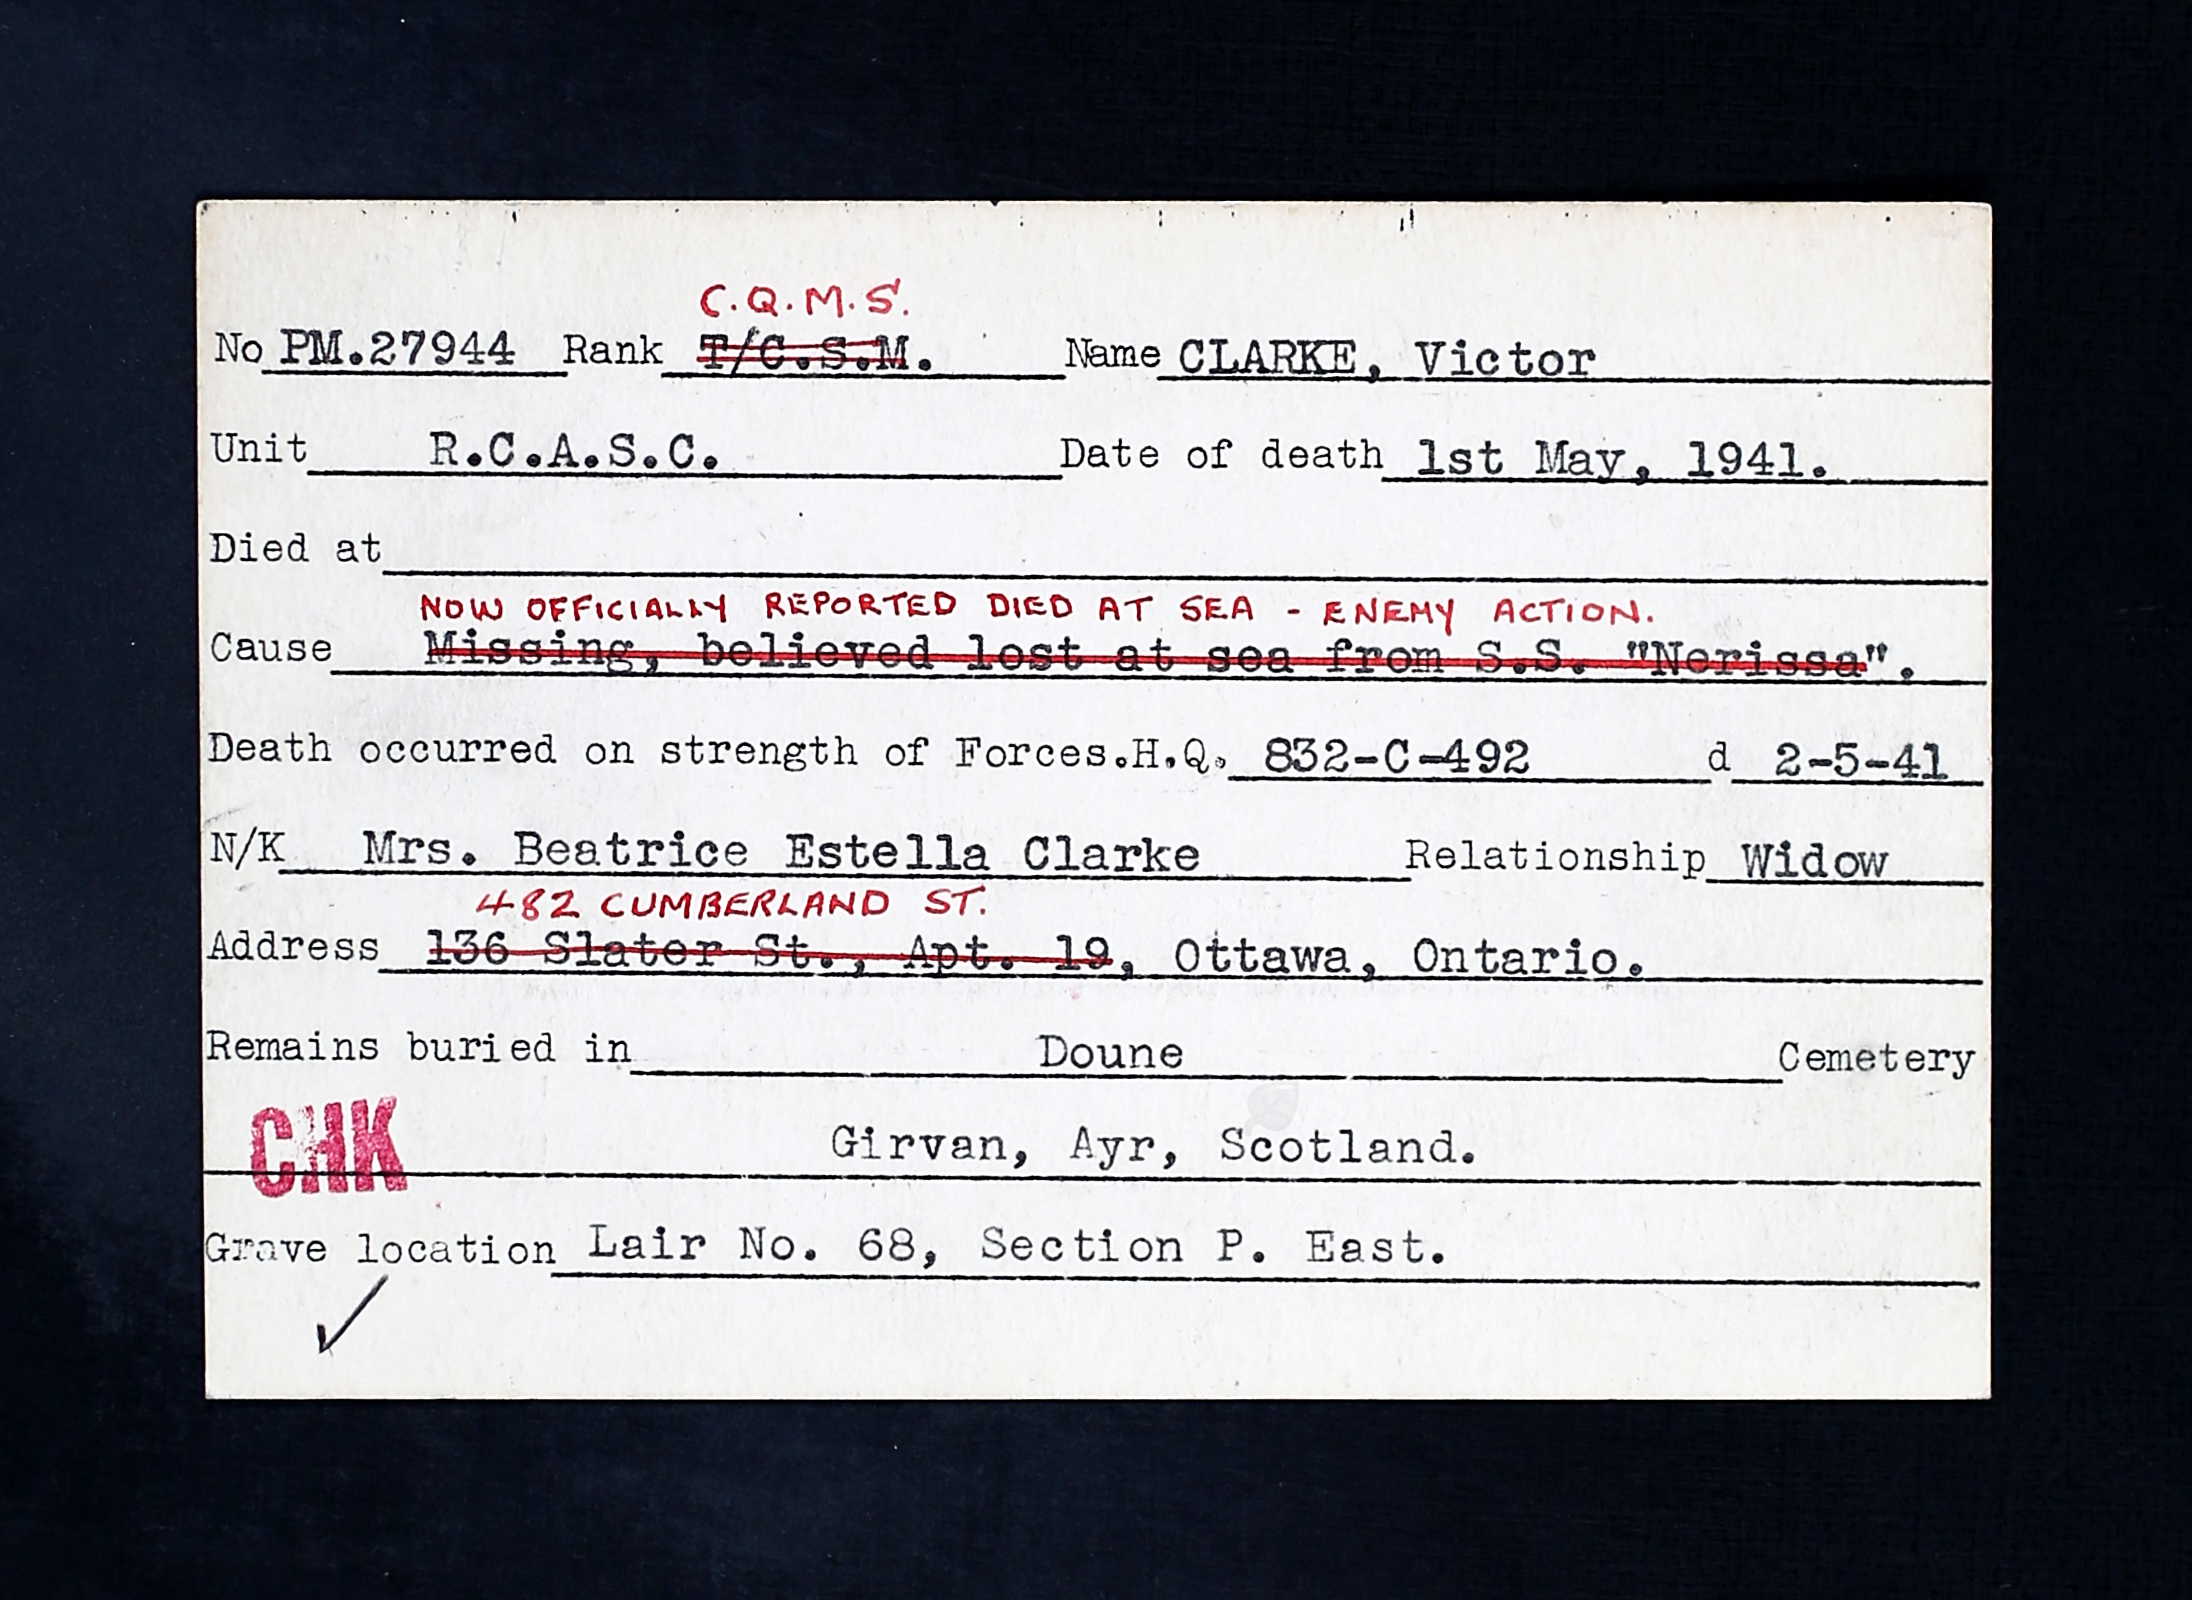 C.Q.M.S.
No PM.27944 Rank T/C.S.M. Name CLARKE, Victor
Unit R.C.A.S.C. Date of death 1st May, 1941.
Died at
NOW OFFICIALLY REPORTED DIED AT SEA - ENEMY ACTION.
Cause Missing, believed lost at sea from S.S. "Nerissa".
Death occurred on strength of Forces.H.Q. 832-C-492 d 2-5-41
N/K Mrs. Beatrice Estella Clarke Relationship Widow
482 CUMBERLAND ST.
Address 136 Slater St., Apt. 19, Ottawa, Ontario.
Remains buried in Doune Cemetery
CHK Girvan, Ayr, Scotland.
Grave location Lair No. 68, Section P. East.